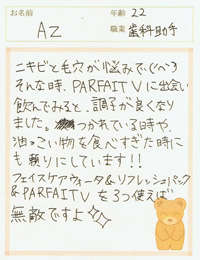 お名前 AZ
年齢 22
職業 歯科助手
ニキビと毛穴が悩みで、(´へ`)
そんな時、PARFAIT Vに出会い
飲んでみると、調子が良くなり
ました。つかれている時や、
油っこい物を食べすぎた時に
も頼りにしています!!
フェイスケアウォータ&リフレッシュパック
&PARFAIT Vを3つ使えば
無敵ですよ